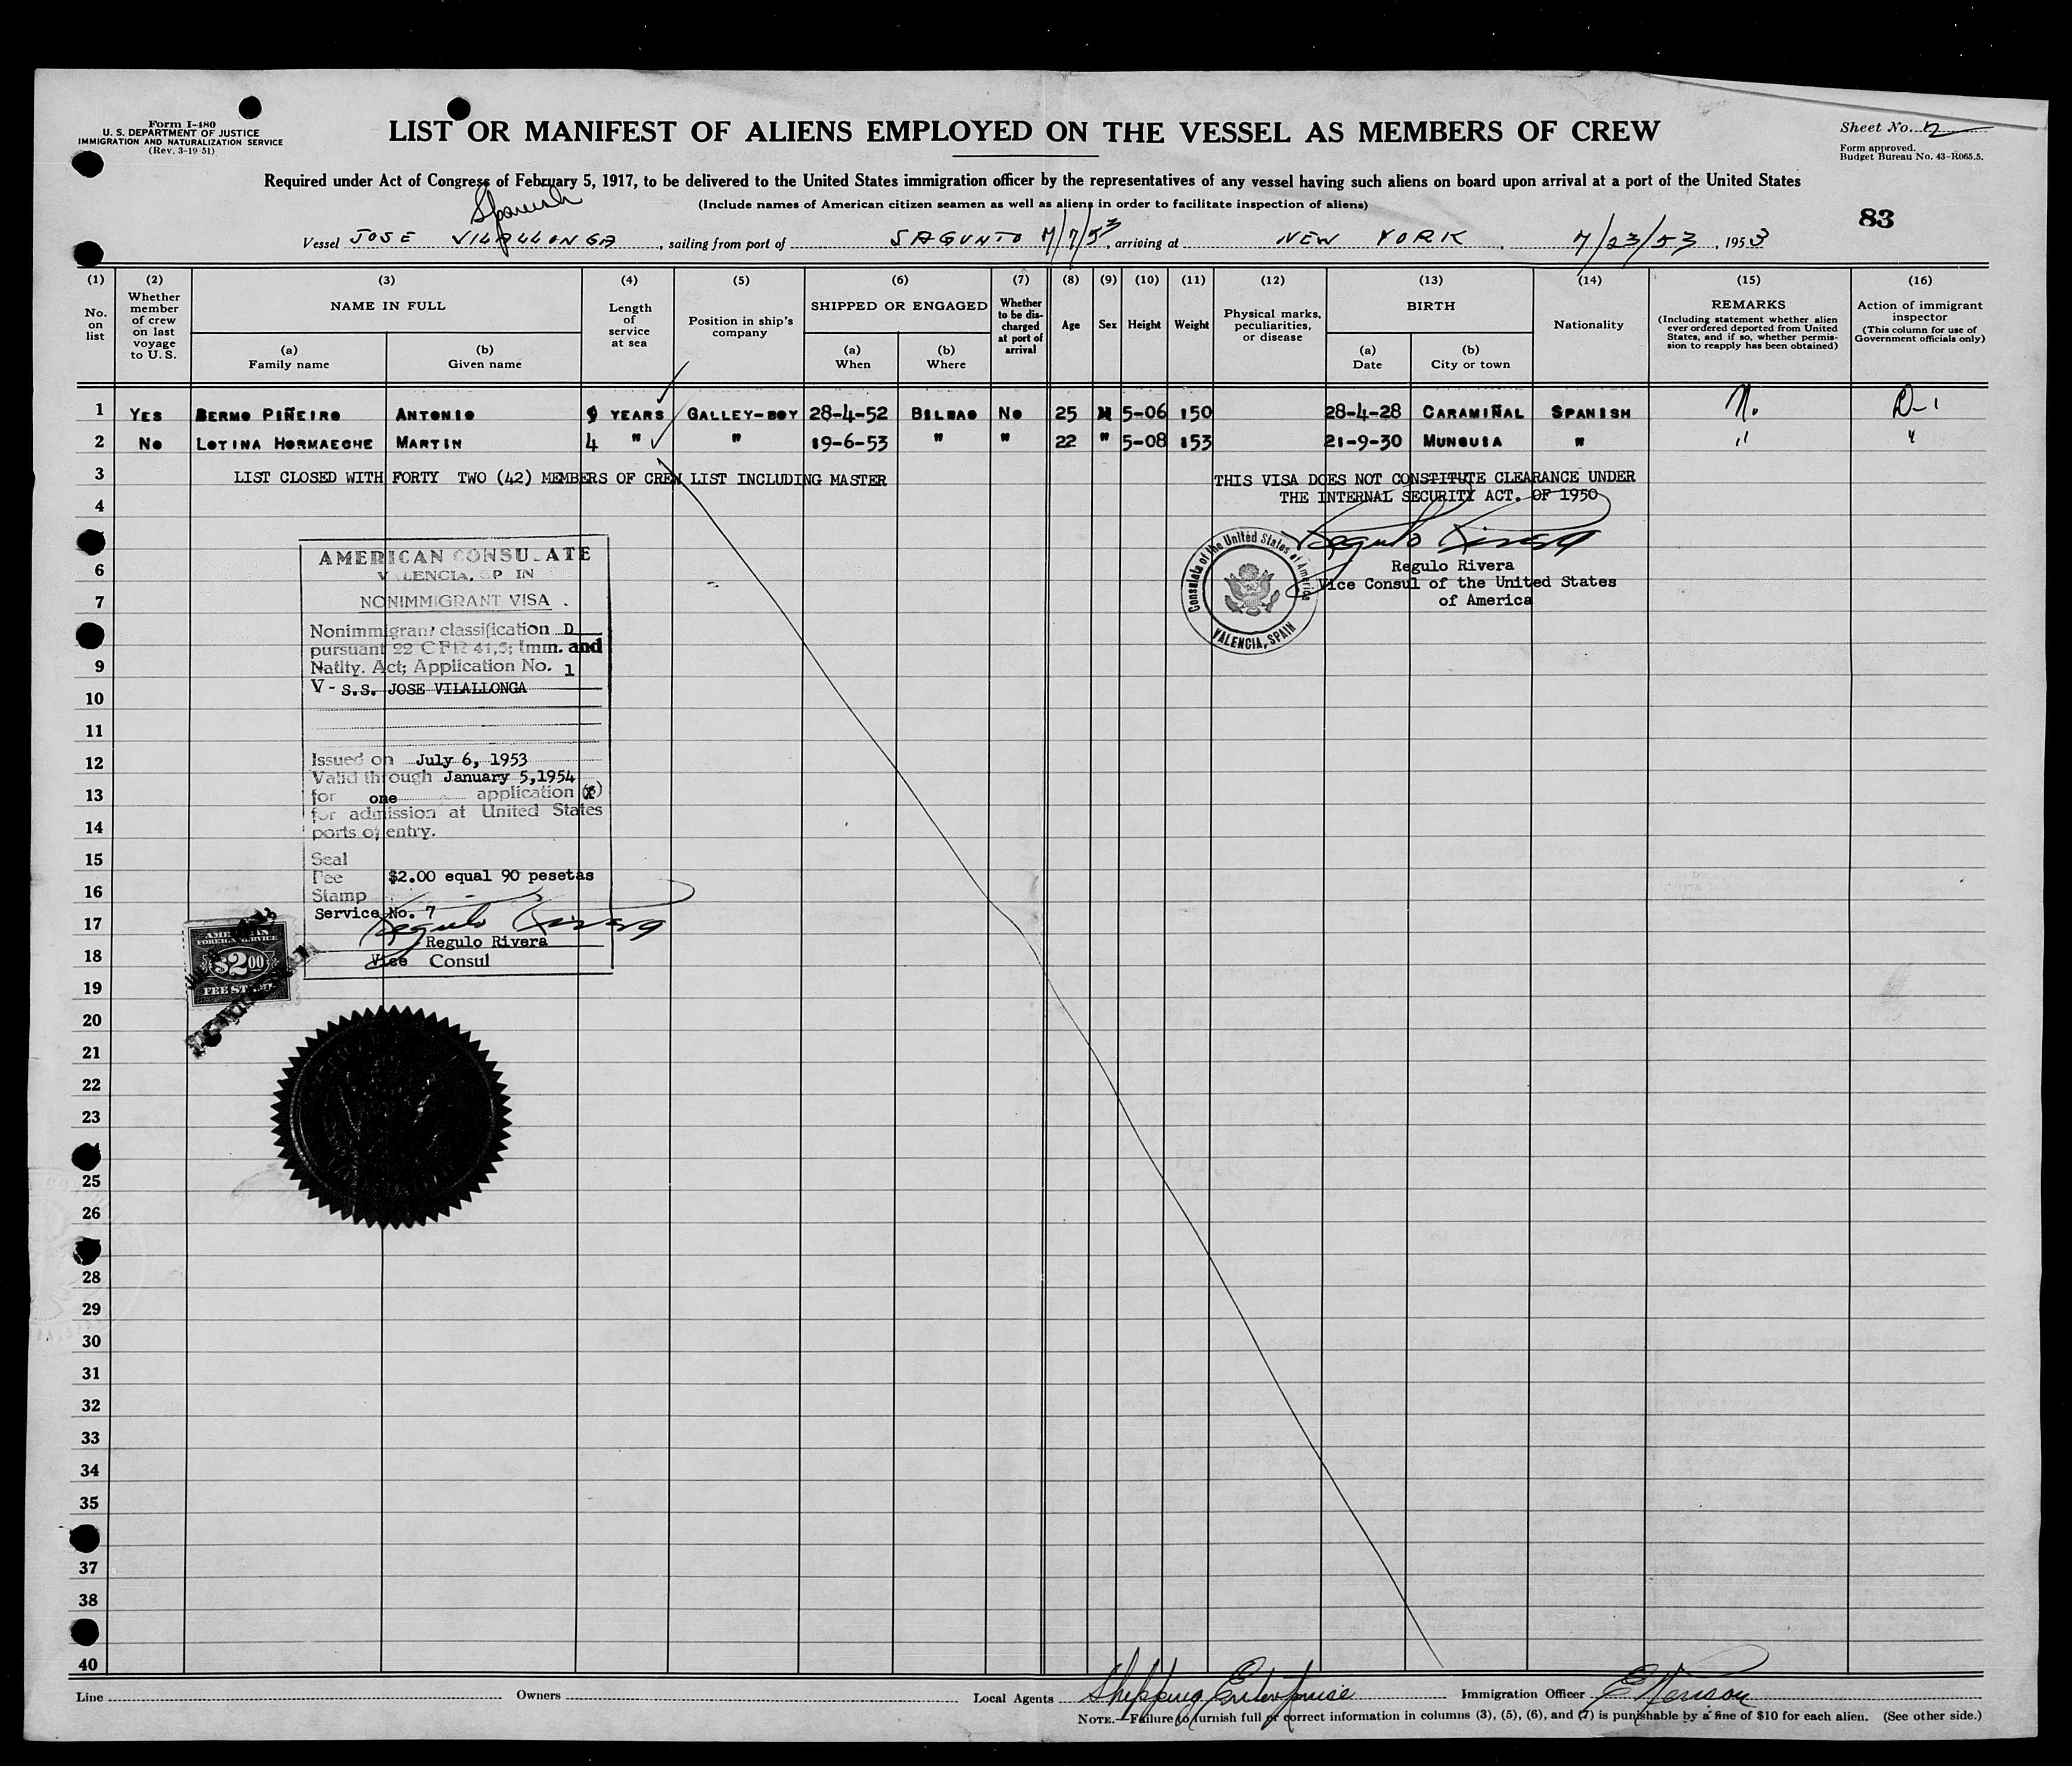 Form I-480
U. S. DEPARTMENT OF JUSTICE
IMMIGRATION AND NATURALIZATION SERVICE
(Rev. 3-19-51)
LIST OR MANIFEST OF ALIENS EMPLOYED ON THE VESSEL AS MEMBERS OF CREW
Sheet No. 2
Form approved.
Budget Bureau No. 43-R065.5.
Required under Act of Congress of February 5, 1917, to be delivered to the United States immigration officer by the representatives of any vessel having such aliens on board upon arrival at a port of the United States
(Include names of American citizen seamen as well as aliens in order to facilitate inspection of aliens)
83
Spanish
Vessel JOSE VILALLONGA, sailing from port of SAGUNTO 7/7/53, arriving at NEW YORK, 7/23/53, 1953
(1) (2) (3) (4) (5) (6) (7) (8) (9) (10) (11) (12) (13) (14) (15) (16)
No. on list
Whether member of crew on last voyage to U. S.
NAME IN FULL
(a) Family name
(b) Given name
Length of service at sea
Position in ship's company
SHIPPED OR ENGAGED
(a) When
(b) Where
Whether to be discharged at port of arrival
Age
Sex
Height
Weight
Physical marks, peculiarities, or disease
BIRTH
(a) Date
(b) City or town
Nationality
REMARKS
(Including statement whether alien ever ordered deported from United States, and if so, whether permission to reapply has been obtained)
Action of immigrant inspector
(This column for use of Government officials only)
1 YES BERMO PIÑEIRO ANTONIO 9 YEARS GALLEY-BOY 28-4-52 BILBAO NO 25 M 5-06 150 28-4-28 CARAMIÑAL SPANISH N. D-1
2 NO LOTINA HORMAECHE MARTIN 4 " " 19-6-53 " " 22 " 5-08 153 21-9-30 MUNGUIA " " "
3 LIST CLOSED WITH FORTY TWO (42) MEMBERS OF CREW LIST INCLUDING MASTER THIS VISA DOES NOT CONSTITUTE CLEARANCE UNDER
4 THE INTERNAL SECURITY ACT. OF 1950
AMERICAN CONSULATE
VALENCIA, SPAIN
NONIMMIGRANT VISA
Nonimmigrant classification D
pursuant 22 CFR 41,5; Imm. and
Natlty. Act; Application No. 1
V - S.S. JOSE VILALLONGA
Issued on July 6, 1953
Valid through January 5,1954
for one application (s)
for admission at United States
ports of entry.
Seal
Fee $2.00 equal 90 pesetas
Stamp
Service No. 7
Regulo Rivera
Regulo Rivera
Vice Consul
AMERICAN
FOREIGN SERVICE
$2.00
FEE STAMP
Regulo Rivera
Regulo Rivera
Vice Consul of the United States
of America
Consulate of the United States of America
VALENCIA, SPAIN
6
7
9
10
11
12
13
14
15
16
17
18
19
20
21
22
23
25
26
28
29
30
31
32
33
34
35
37
38
40
Line Owners Local Agents Shipping Enterprise Immigration Officer
NOTE.—Failure to furnish full or correct information in columns (3), (5), (6), and (7) is punishable by a fine of $10 for each alien. (See other side.)